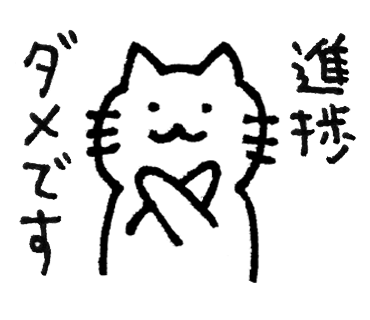 進捗
ダメです